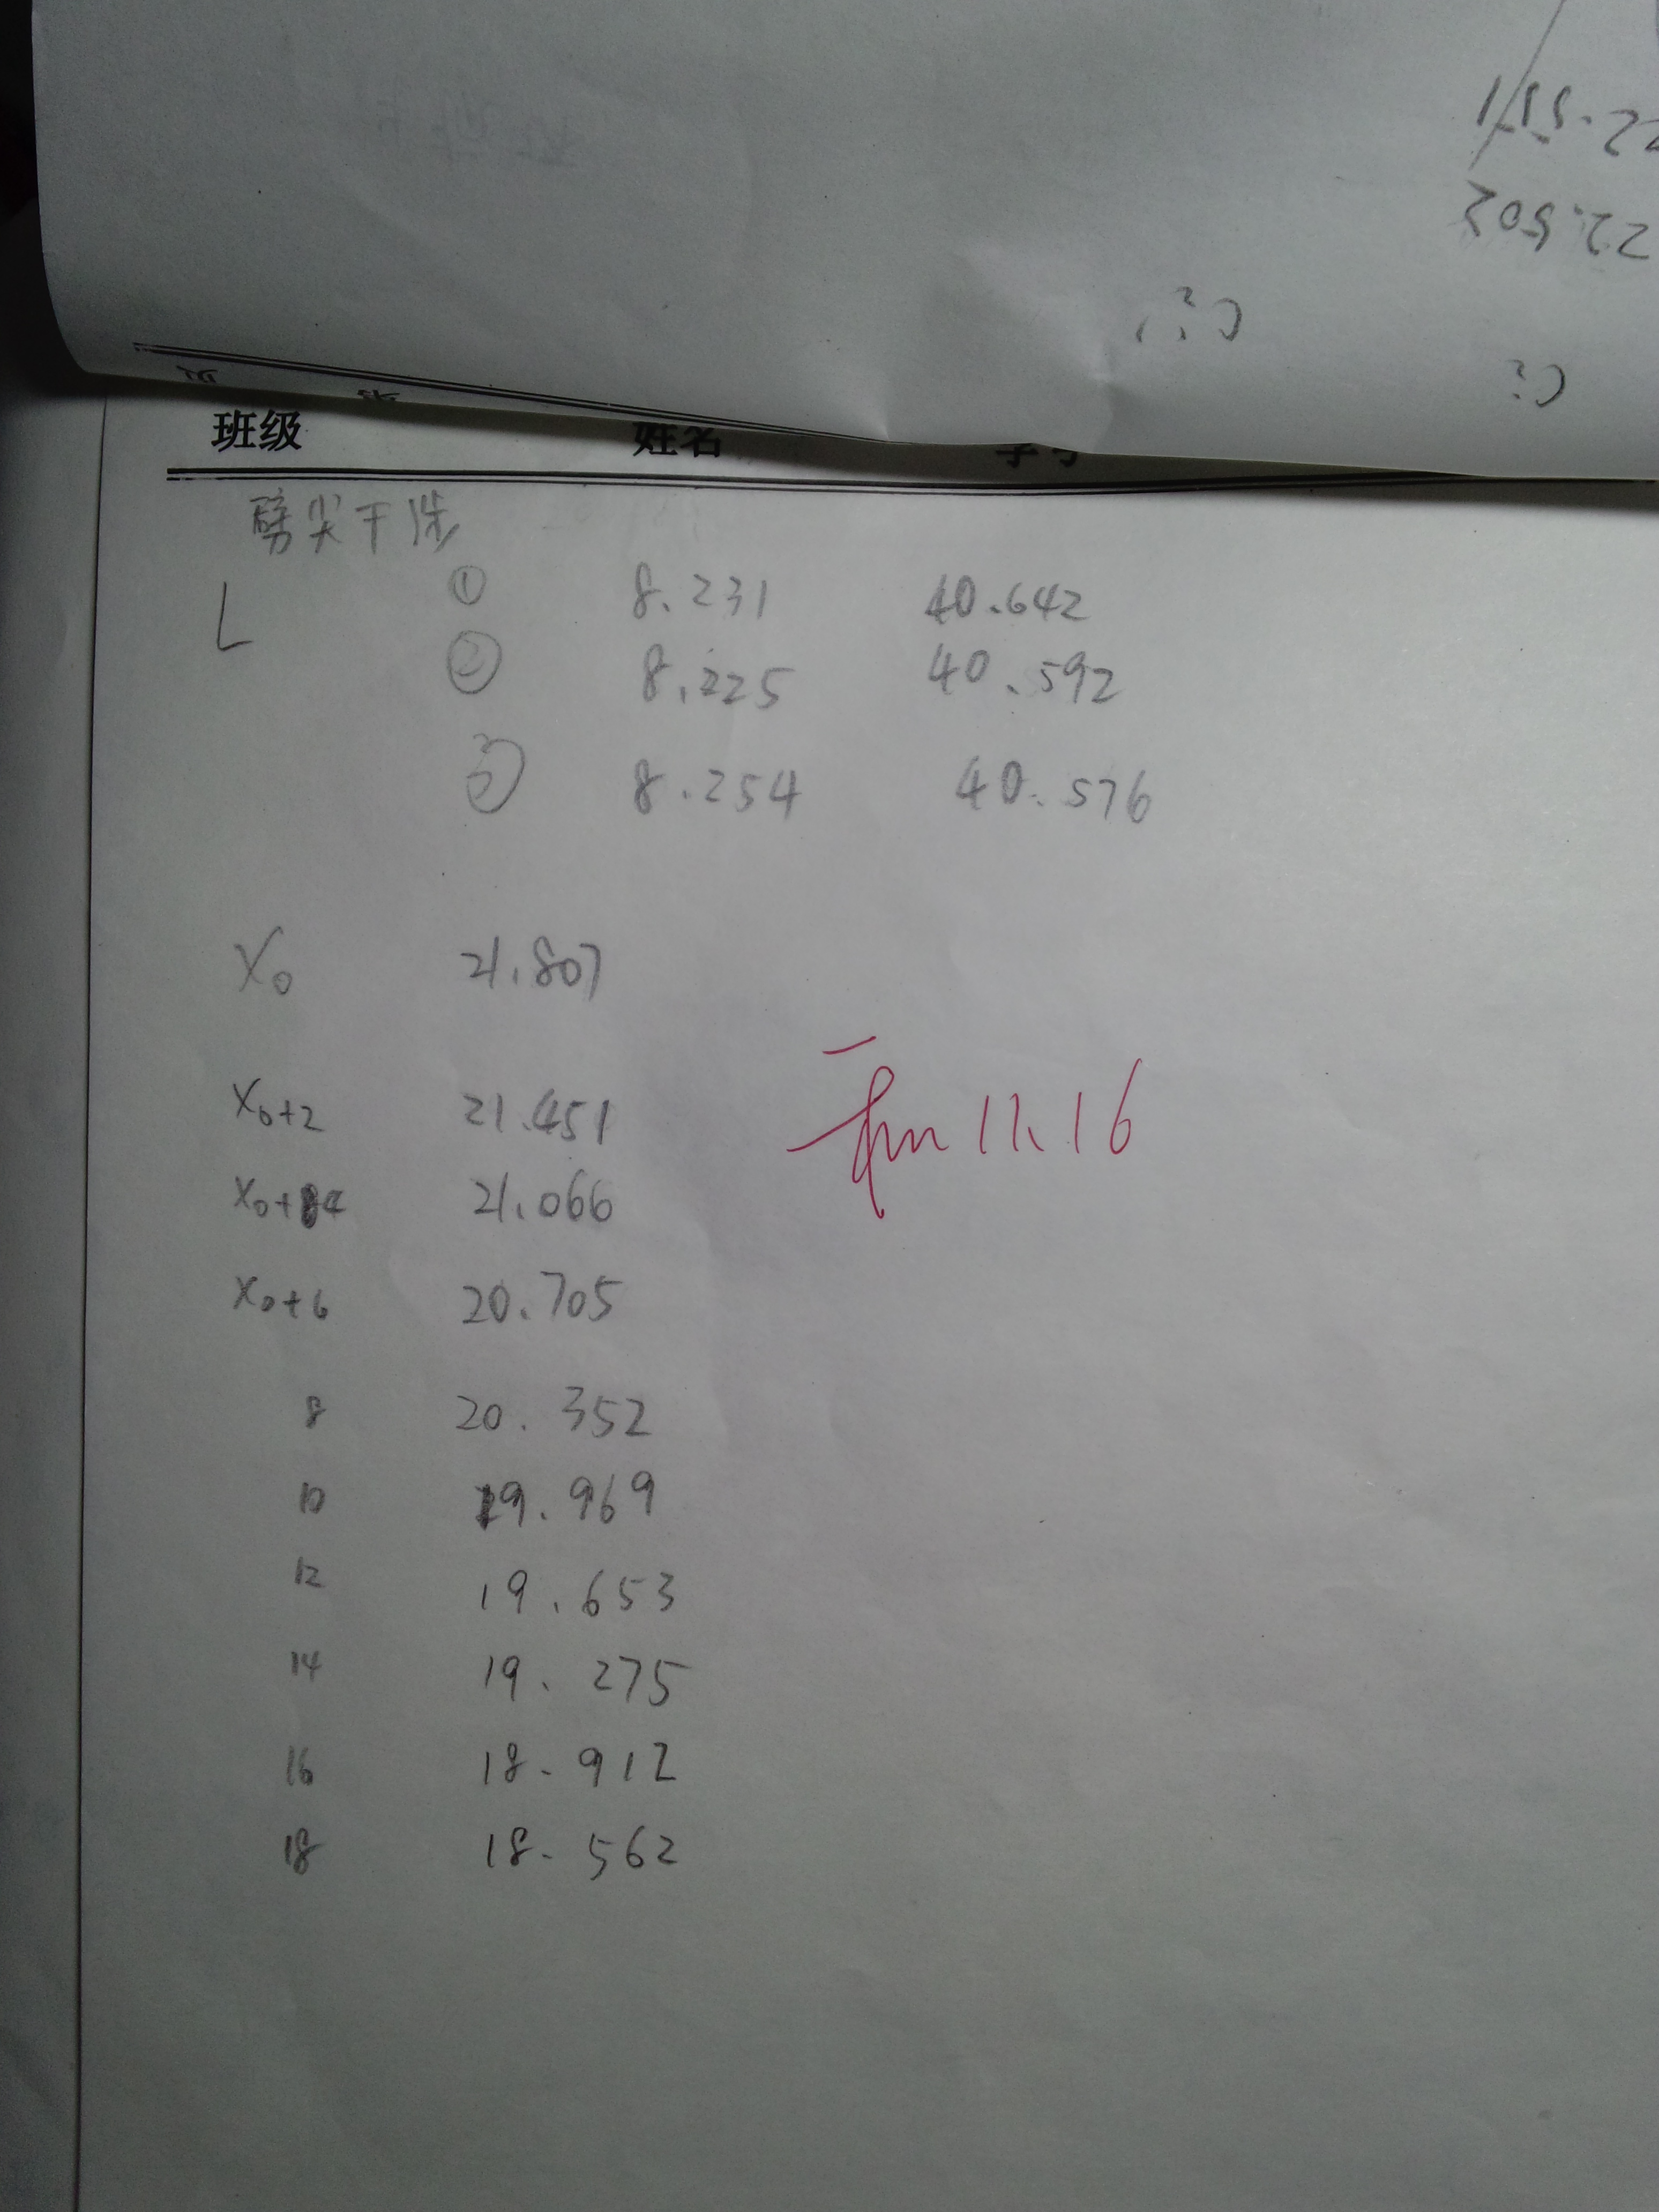 22.551
22.502
C₂'
C₂
班级 姓名 学号
劈尖干涉
L ① 8.231 40.642
② 8.225 40.592
③ 8.254 40.576
X₀ 21.807
X₀+2 21.451
X₀+4 21.066
X₀+6 20.705
8 20.352
10 19.969
12 19.653
14 19.275
16 18.912
18 18.562
11.16